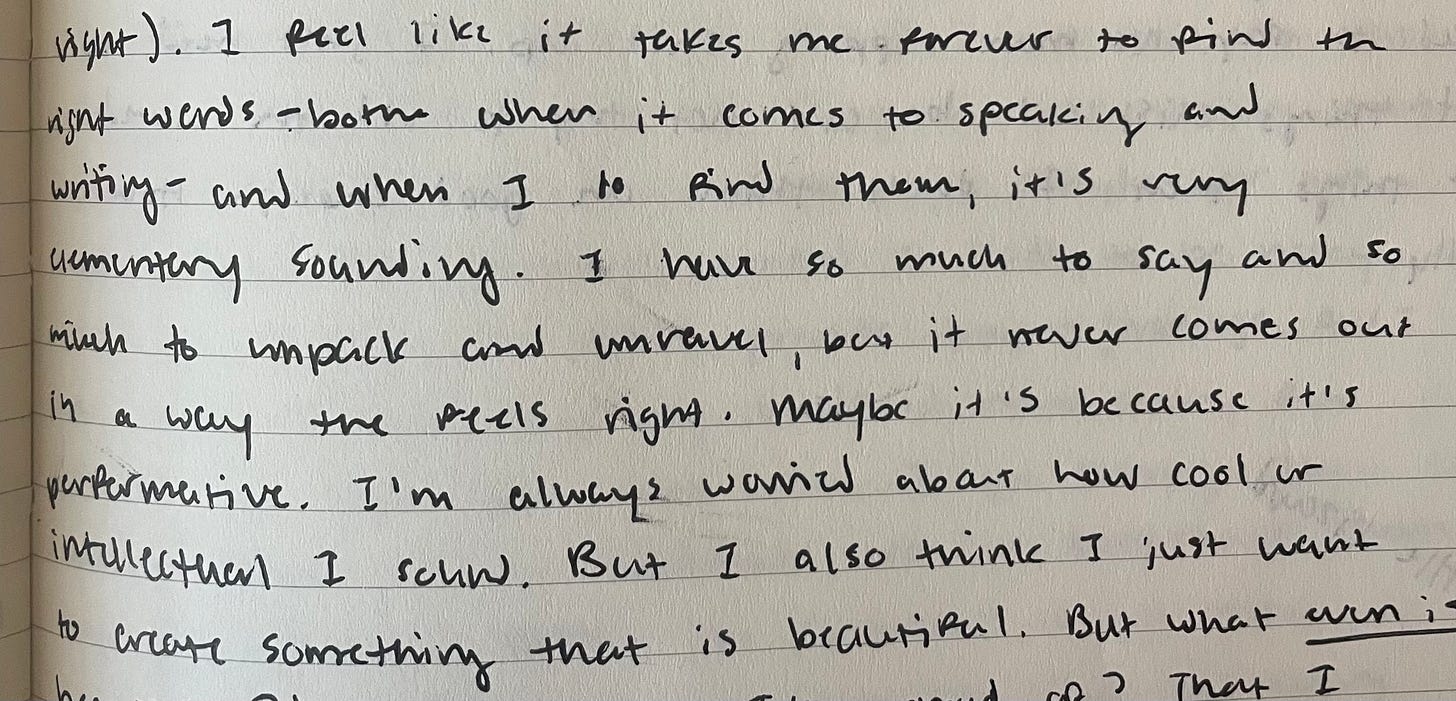 right). I feel like it takes me forever to find th
right words - both when it comes to speaking and
writing - and when I to find them, it's very
elementary sounding. I have so much to say and so
much to unpack and unravel, but it never comes out
in a way the feels right. Maybe it's because it's
performative. I'm always worried about how cool or
intellectual I sound. But I also think I just want
to create something that is beautiful. But what even is
of? That I